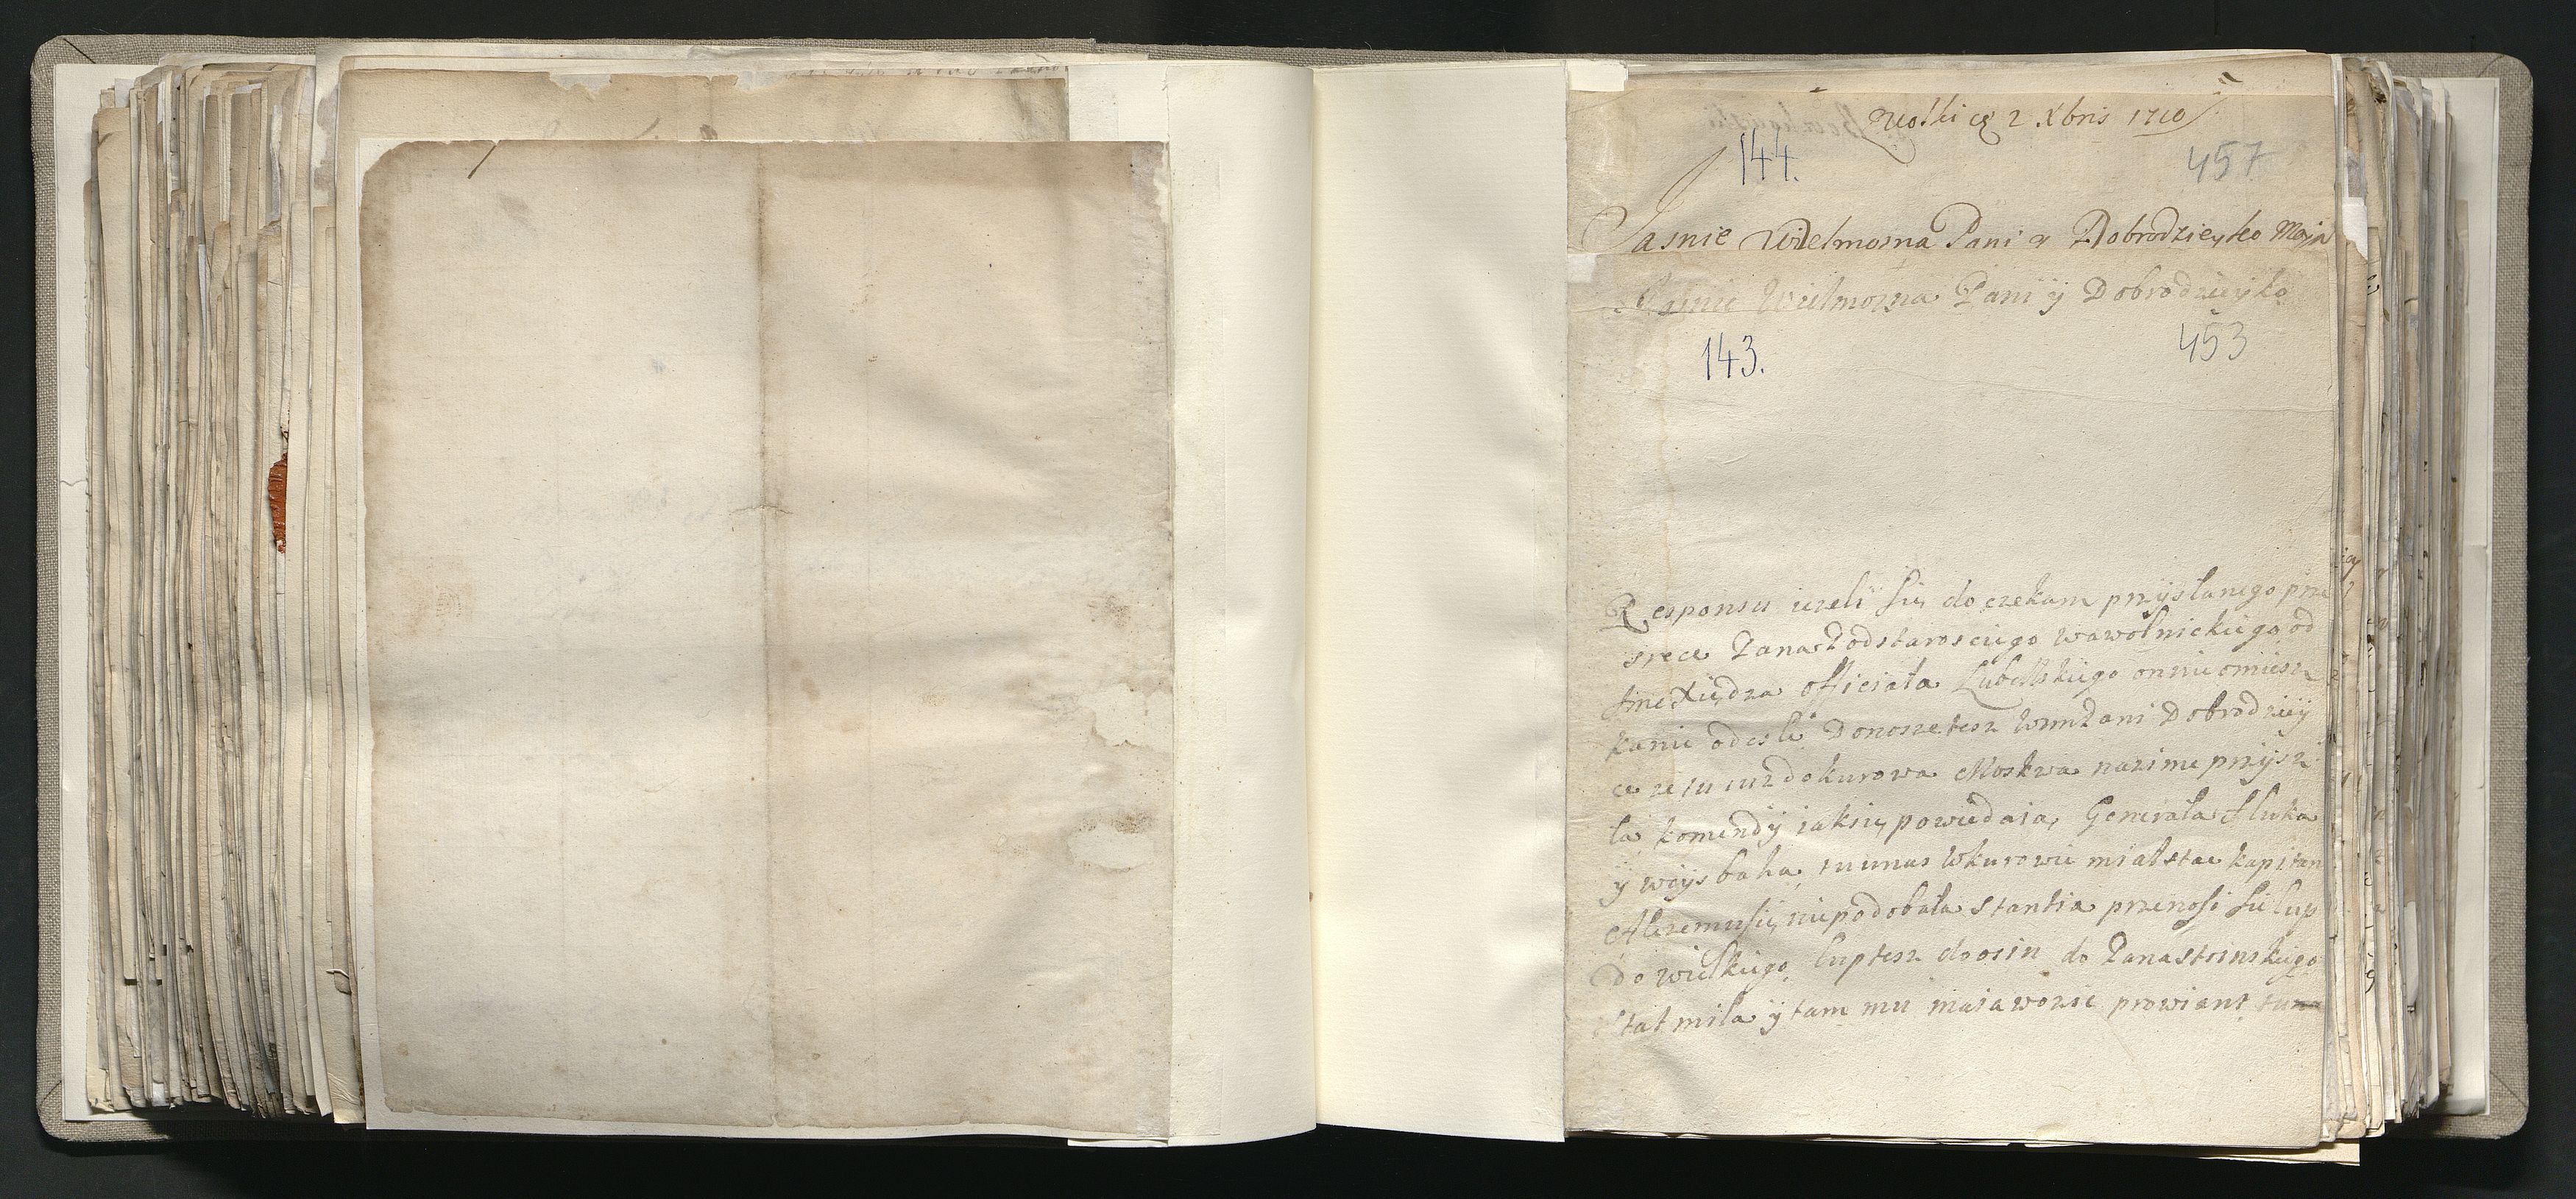 Wolki 2 Xbris 1710
144.
457
Jasnie Wielmozna Pani y Dobrodzieyko Moja
Jasnie Wielmozna Pani ÿ Dobrodzieyko
143.
453
Responsu iezeli sie doczekam przÿslanego prze
srece Pana Podstarosciego wawolnickiego od
Xiędza officiala Lubelskiego onnieomiesz
kanie odesli Donosze tesz WmPani Dobrodziÿ
ce ze tu iuz do kurowa Moskwa nazime przÿsz
la komendÿ iaksie powiedaia, Generala
ÿ tu unas wkurowie mialstac kapitan
Aleze mu sie niepodobala Stantia przenosi sie lup
do wielkiego luptesz doosin do Pana
stat mila ÿ tam mu maia wozic prowiant